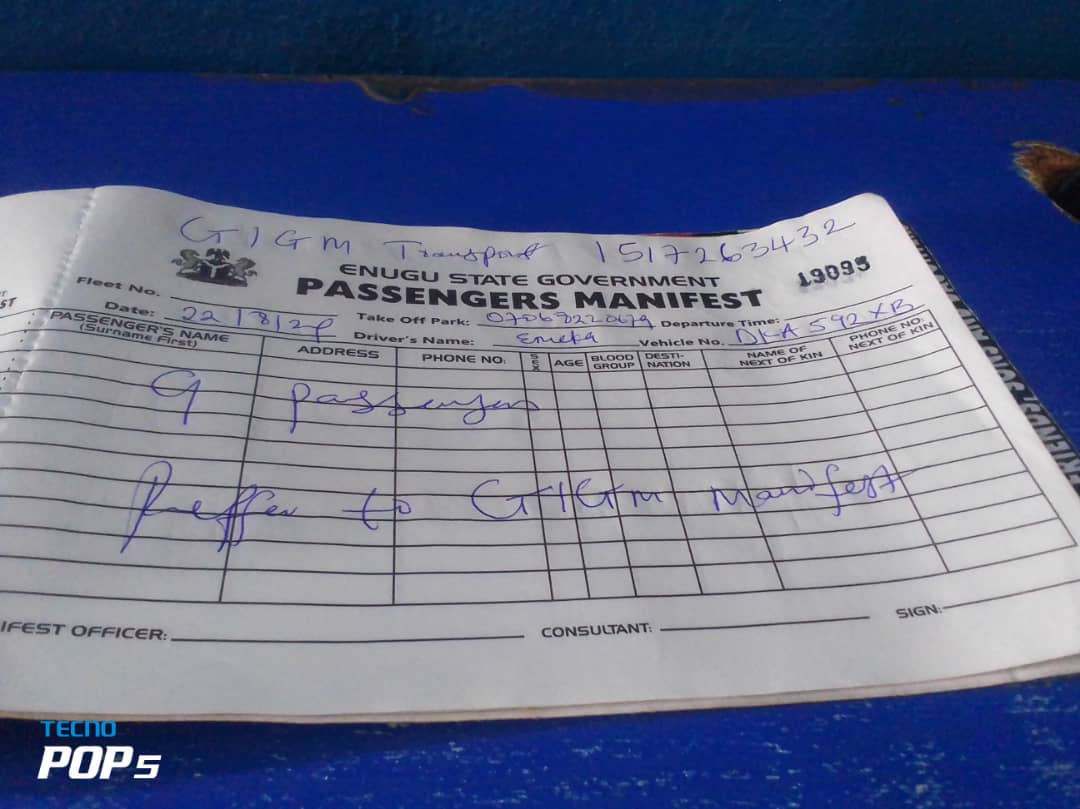 GIGM Transport 1517263432
ENUGU STATE GOVERNMENT 19095
PASSENGERS MANIFEST
Fleet No.
Date: 22/8/2 Take Off Park: 07068220679 Departure Time:
Driver's Name: Emeka Vehicle No. DKA 592 XB
PASSENGER'S NAME (Surname First) ADDRESS PHONE NO: SEX AGE BLOOD GROUP DESTI-NATION NAME OF NEXT OF KIN PHONE NO. NEXT OF KIN
9 passengers
Reffer to GIGM manifest
IFEST OFFICER: CONSULTANT: SIGN:
ST
TECNO
POP 5